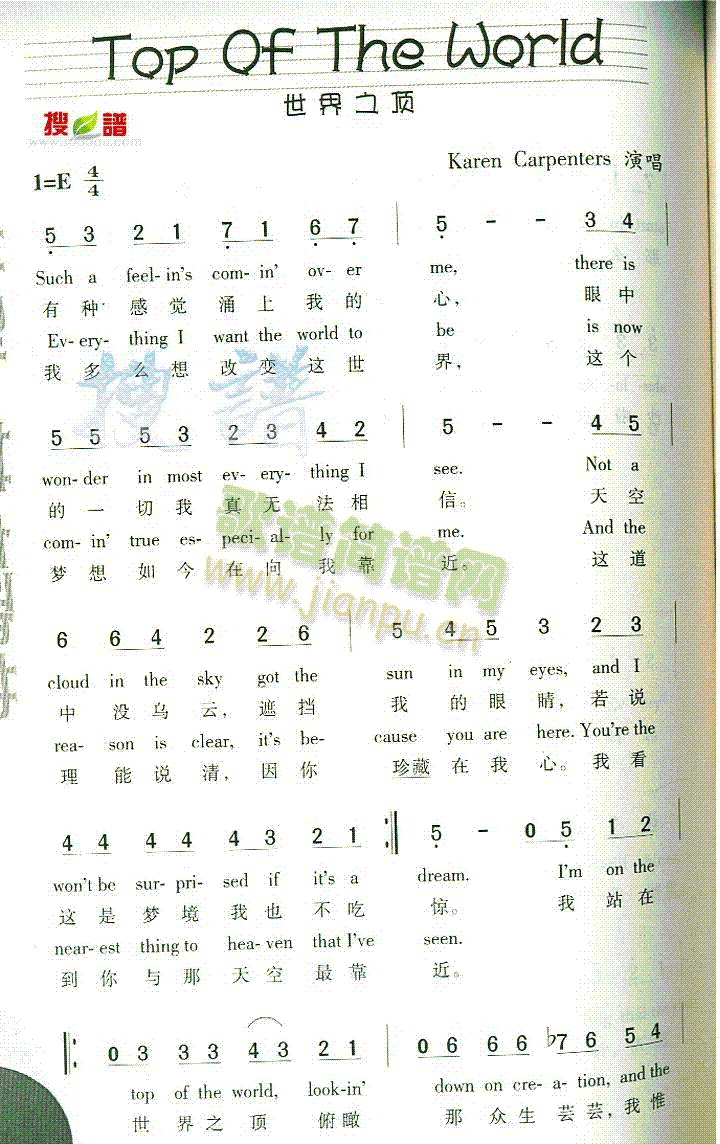 Top Of The World
世界之顶
搜 谱
www.sooopu.com
Karen Carpenters 演唱
1=E 4/4
5 3 2 1 7 1 6 7 | 5 - - 3 4 |
Such a feel-in's com-in' ov-er me, there is
有种感觉涌上我的心,眼中
Ev-ery-thing I want the world to be is now
我多么想改变这世界,这个
搜 譜
5 5 5 3 2 3 4 2 | 5 - - 4 5 |
won-der in most ev-ery-thing I see. Not a
的一切我真无法相信。天空
com-in' true es-peci-al-ly for me. And the
梦想如今在向我靠近。这道
歌谱简谱网
www.jianpu.cn
6 6 4 2 2 6 | 5 4 5 3 2 3 |
cloud in the sky got the sun in my eyes, and I
中没乌云,遮挡我的眼睛,若说
rea-son is clear, it's be-cause you are here. You're the
理能说清,因你珍藏在我心。我看
4 4 4 4 4 3 2 1 :| 5 - 0 5 1 2 |
won't be sur-pri-sed if it's a dream. I'm on the
这是梦境我也不吃惊。我站在
near-est thing to hea-ven that I've seen.
到你与那天空最靠近。
|: 0 3 3 3 4 3 2 1 | 0 6 6 6 ♭7 6 5 4 |
top of the world, look-in' down on cre-a-tion, and the
世界之顶俯瞰那众生芸芸,我惟